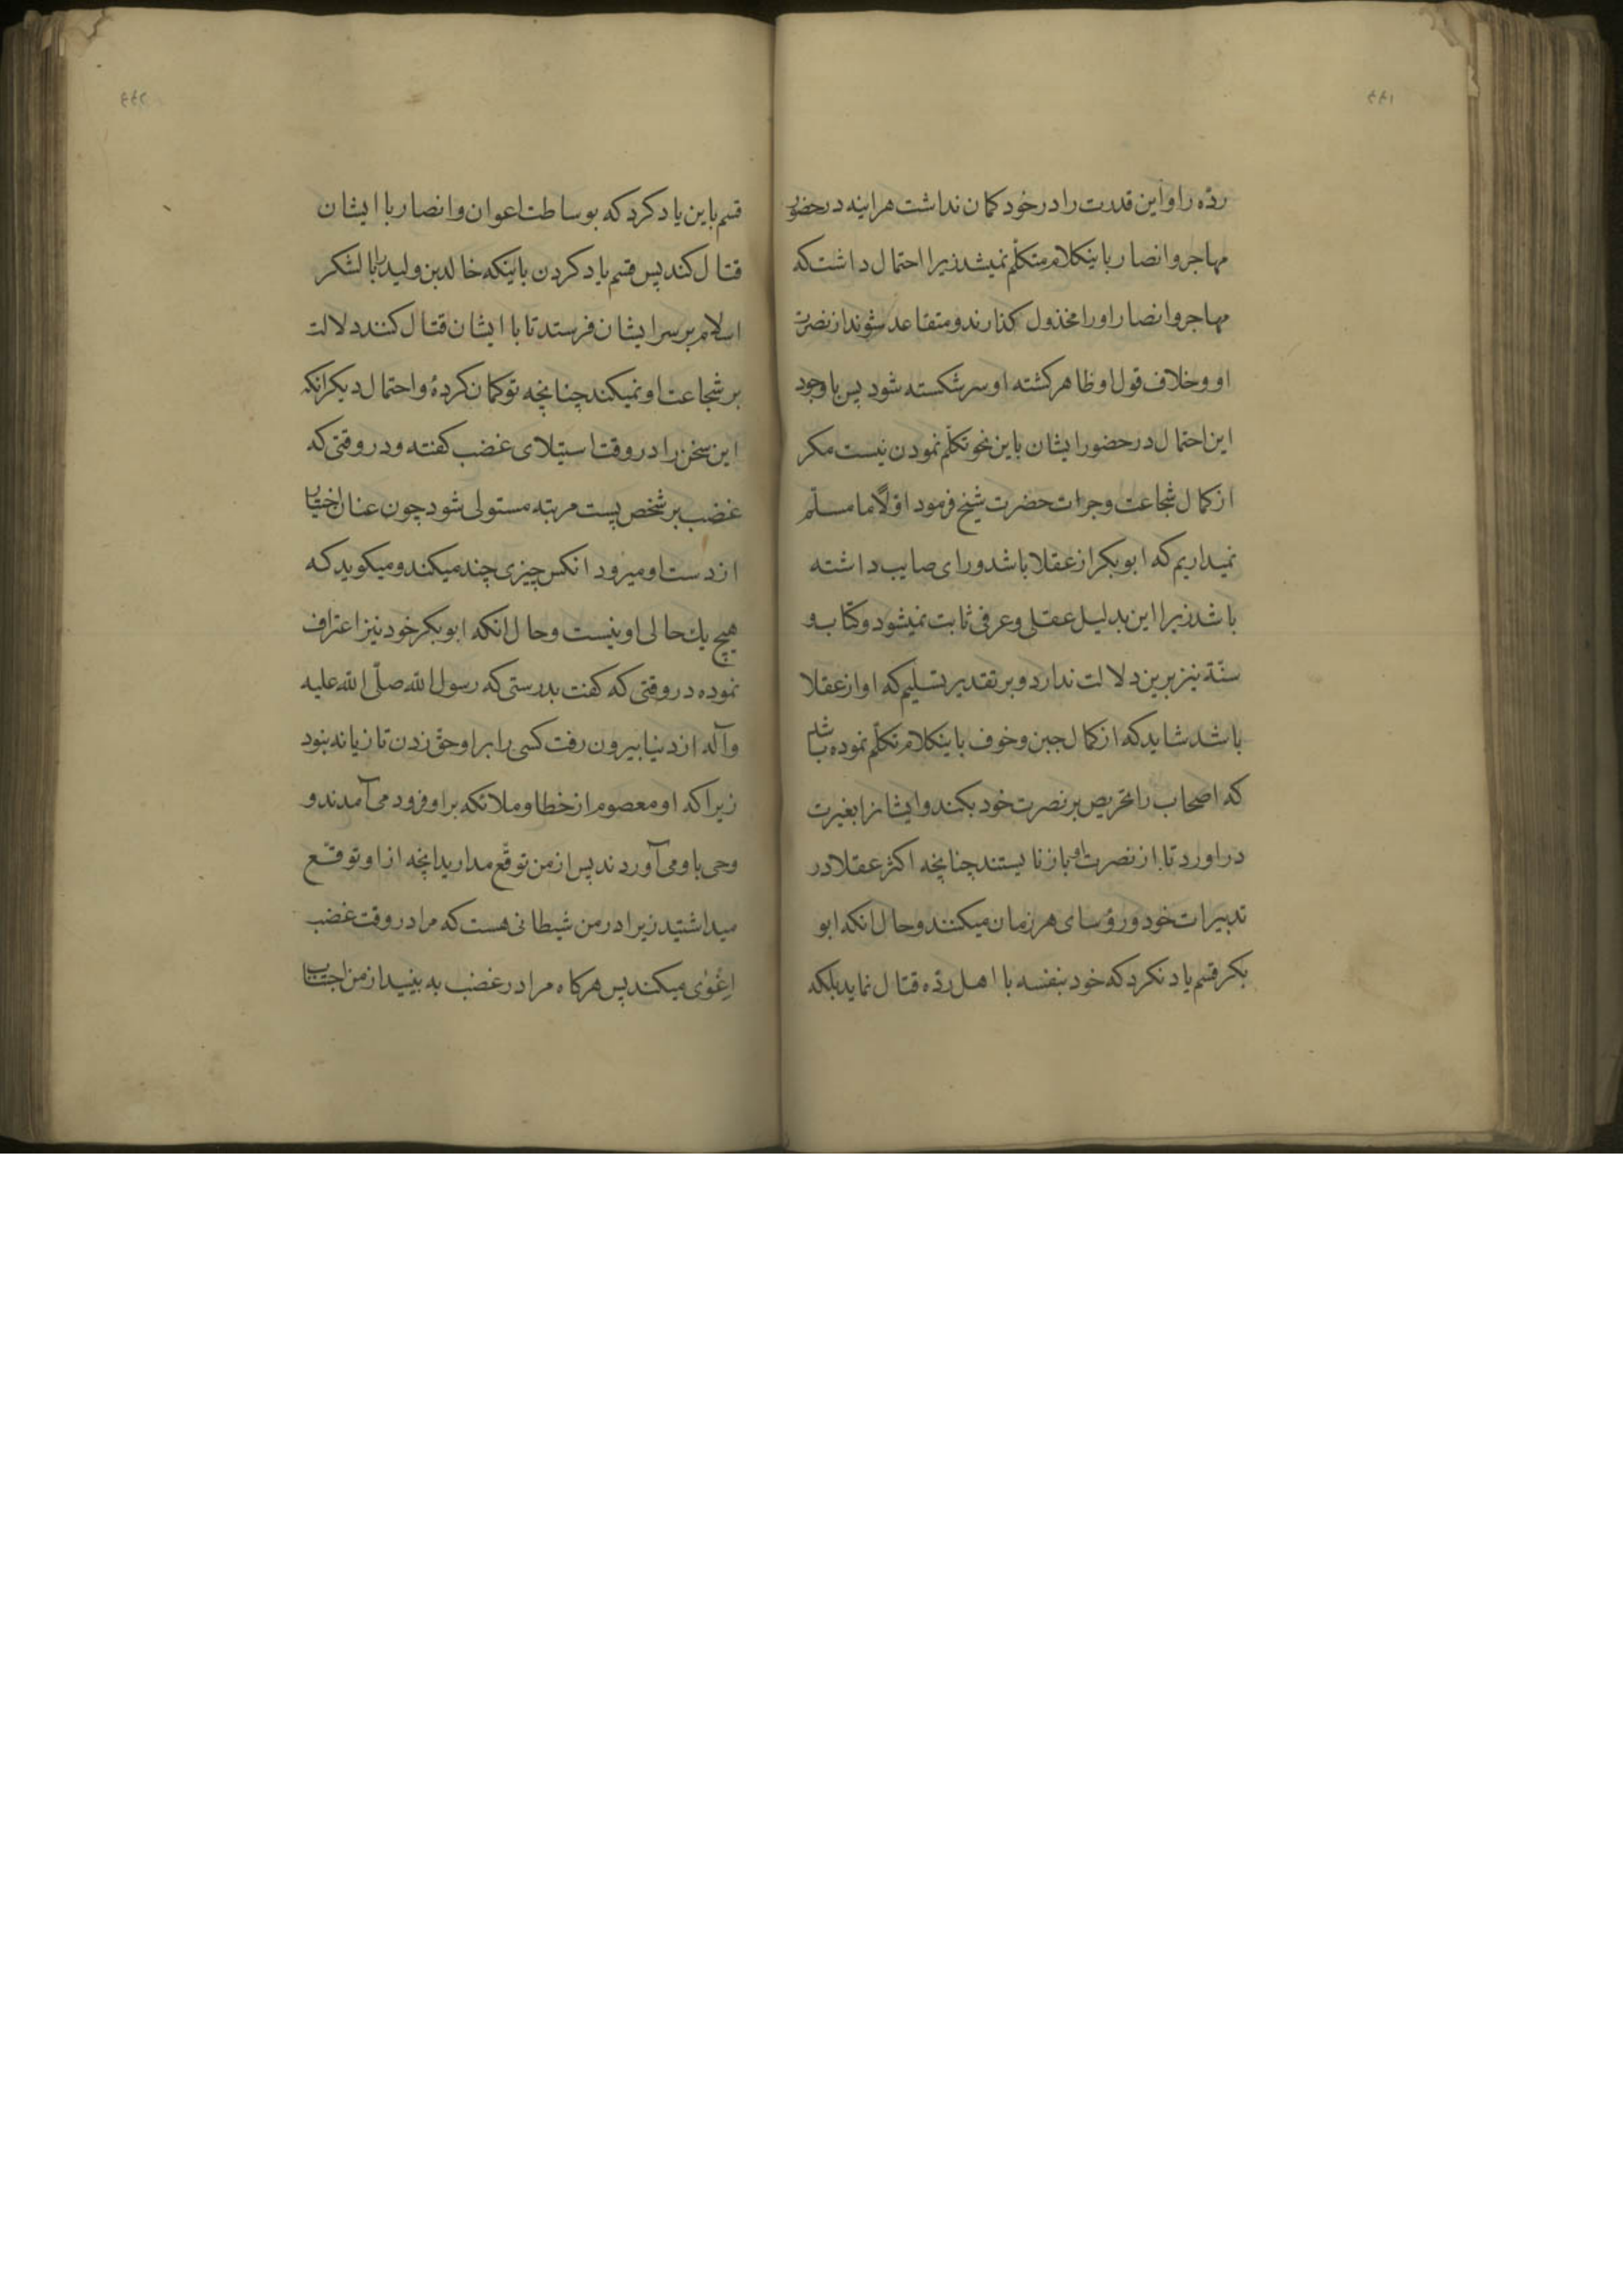 ۴۴۱
رده را و این قدرت را در خود کمان نداشت هراینه در حضور
مهاجر و انصار باینکلام متکلّم نمیشد زیرا احتمال داشت که
مهاجر و انصار او را مخذول کذارند و متقاعد شوند از نصرت
او و خلاف قول او ظاهر کشته او سر شکسته شود پس با وجود
این احتمال در حضور ایشان باین نحو تکلّم نمودن نیست مکر
از کمال شجاعت و جرات حضرت شیخ فرمود اوّلاً ما مسلّم
نمیداریم که ابوبکر از عقلا باشد و رای صایب داشته
باشد زیرا این بدلیل عقلی و عرفی ثابت نمیشود و کتاب و
سنّة نیز برین دلالت ندارد و بر تقدیر تسلیم که او از عقلا
باشد شاید که از کمال جبن و خوف باینکلام تکلّم نموده باشد
که اصحاب را تحریص بر نصرت خود بکند و ایشانرا بغیرت
دراورد تا از نصرت او باز نایستند چنانچه اکثر عقلا در
تدبیرات خود و رؤسای هر زمان میکنند و حال انکه ابو
بکر قسم یاد نکرد که خود بنفسه با اهل ردّه قتال نماید بلکه
۴۴۲
قسم باین یاد کرد که بوساطت اعوان و انصار با ایشان
قتال کند پس قسم یاد کردن باینکه خالد بن ولید را با لشکر
اسلام بر سر ایشان فرستد تا با ایشان قتال کنند دلالت
بر شجاعت او نمیکند چنانچه تو کمان کردهٔ و احتمال دیکر انکه
این سخن را در وقت استیلای غضب کفته و در وقتی که
غضب بر شخص پست مرتبه مستولی شود چون عنان اختیار
از دست او میرود انکس چیزی چند میکند و میکوید که
هیچ یك حالی او نیست و حال انکه ابوبکر خود نیز اعتراف
نموده در وقتی که کفت بدرستی که رسول الله صلّی الله علیه
وآله از دنیا بیرون رفت کسی را بر او حق زدن تازیانه نبود
زیرا که او معصوم از خطا و ملائکه بر او فرود می آمدند و
وحی باو می آوردند پس از من توقّع مدارید انچه از او توقّع
میداشتید زیرا در من شیطانی هست که مرا در وقت غضب
اغوٰی میکند پس هرکاه مرا در غضب به بینید از من اجتناب